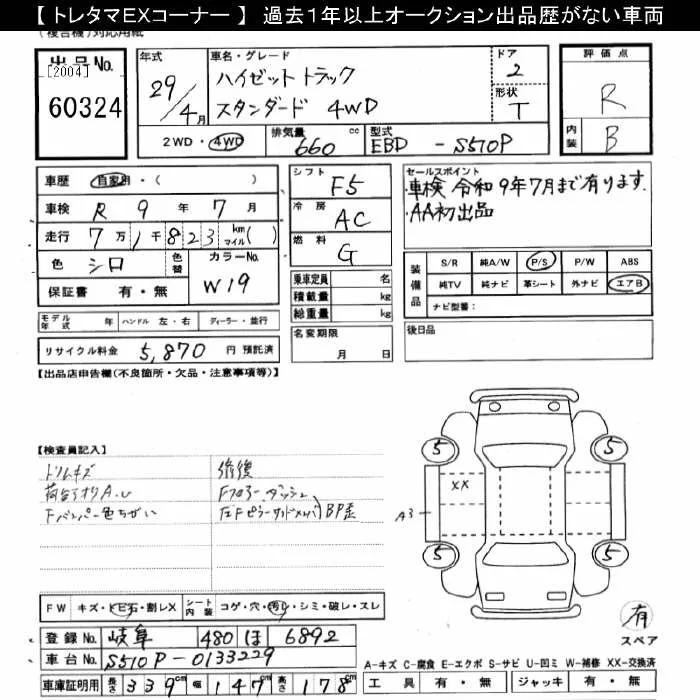 【 トレタマEXコーナー 】 過去1年以上オークション出品歴がない車両
(複合機)対応用紙
出品No.
[2004]
60324
年式 29/4月
車名・グレード
ハイゼットトラック
スタンダード 4WD
ドア 2
形状 T
評価点 R
内装 B
2WD・4WD
排気量 660 cc
型式 EBD - S510P
車歴 自家用・( )
車検 R 9年 7月
走行 7万1千823 km マイル( )
色 シロ 色替 カラーNo. W19
保証書 有・無
シフト F5
冷房 AC
燃料 G
乗車定員 名
積載量 kg
総重量 kg
名変期限 月 日
セールスポイント
・車検 令和9年7月まで有ります.
・AA初出品
装備品 S/R 純A/W P/S P/W ABS
純TV 純ナビ 革シート 外ナビ エアB
ナビ型番:
後日品
モデル年式 年 ハンドル 左・右 ディーラー・並行
リサイクル料金 5,870 円 預託済
【出品店申告欄(不良箇所・欠品・注意事項等)】
【検査員記入】
トリムキズ
荷台アオリA.U
Fバンパー色ちがい
修復
Fフロアーダッシュ
左Fピラーサイドメンバ BP歪
5 5
XX
A3
5 5
FW キズ・トビ石・割レX シート内装 コゲ・穴・汚レ・シミ・破レ・スレ
登録No. 岐阜 480 ほ 6892
車台No. S510P-0133229
車庫証明用 長さ 339cm 幅 147cm 高さ 178cm
有
スペア
A-キズ C-腐食 E-エクボ S-サビ U-凹ミ W-補修 XX-交換済
工具 有・無 ジャッキ 有・無